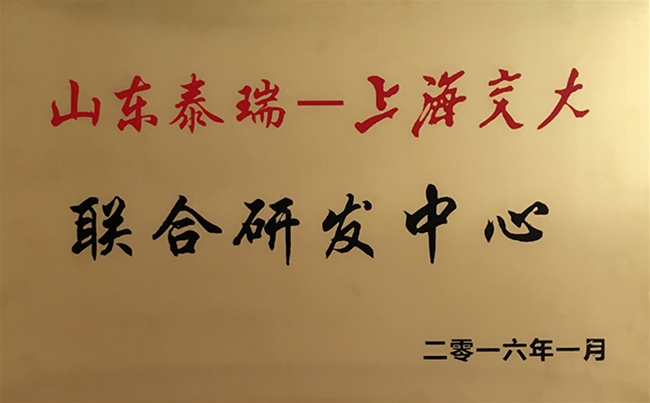 山东泰瑞—上海交大
联合研发中心
二零一六年一月